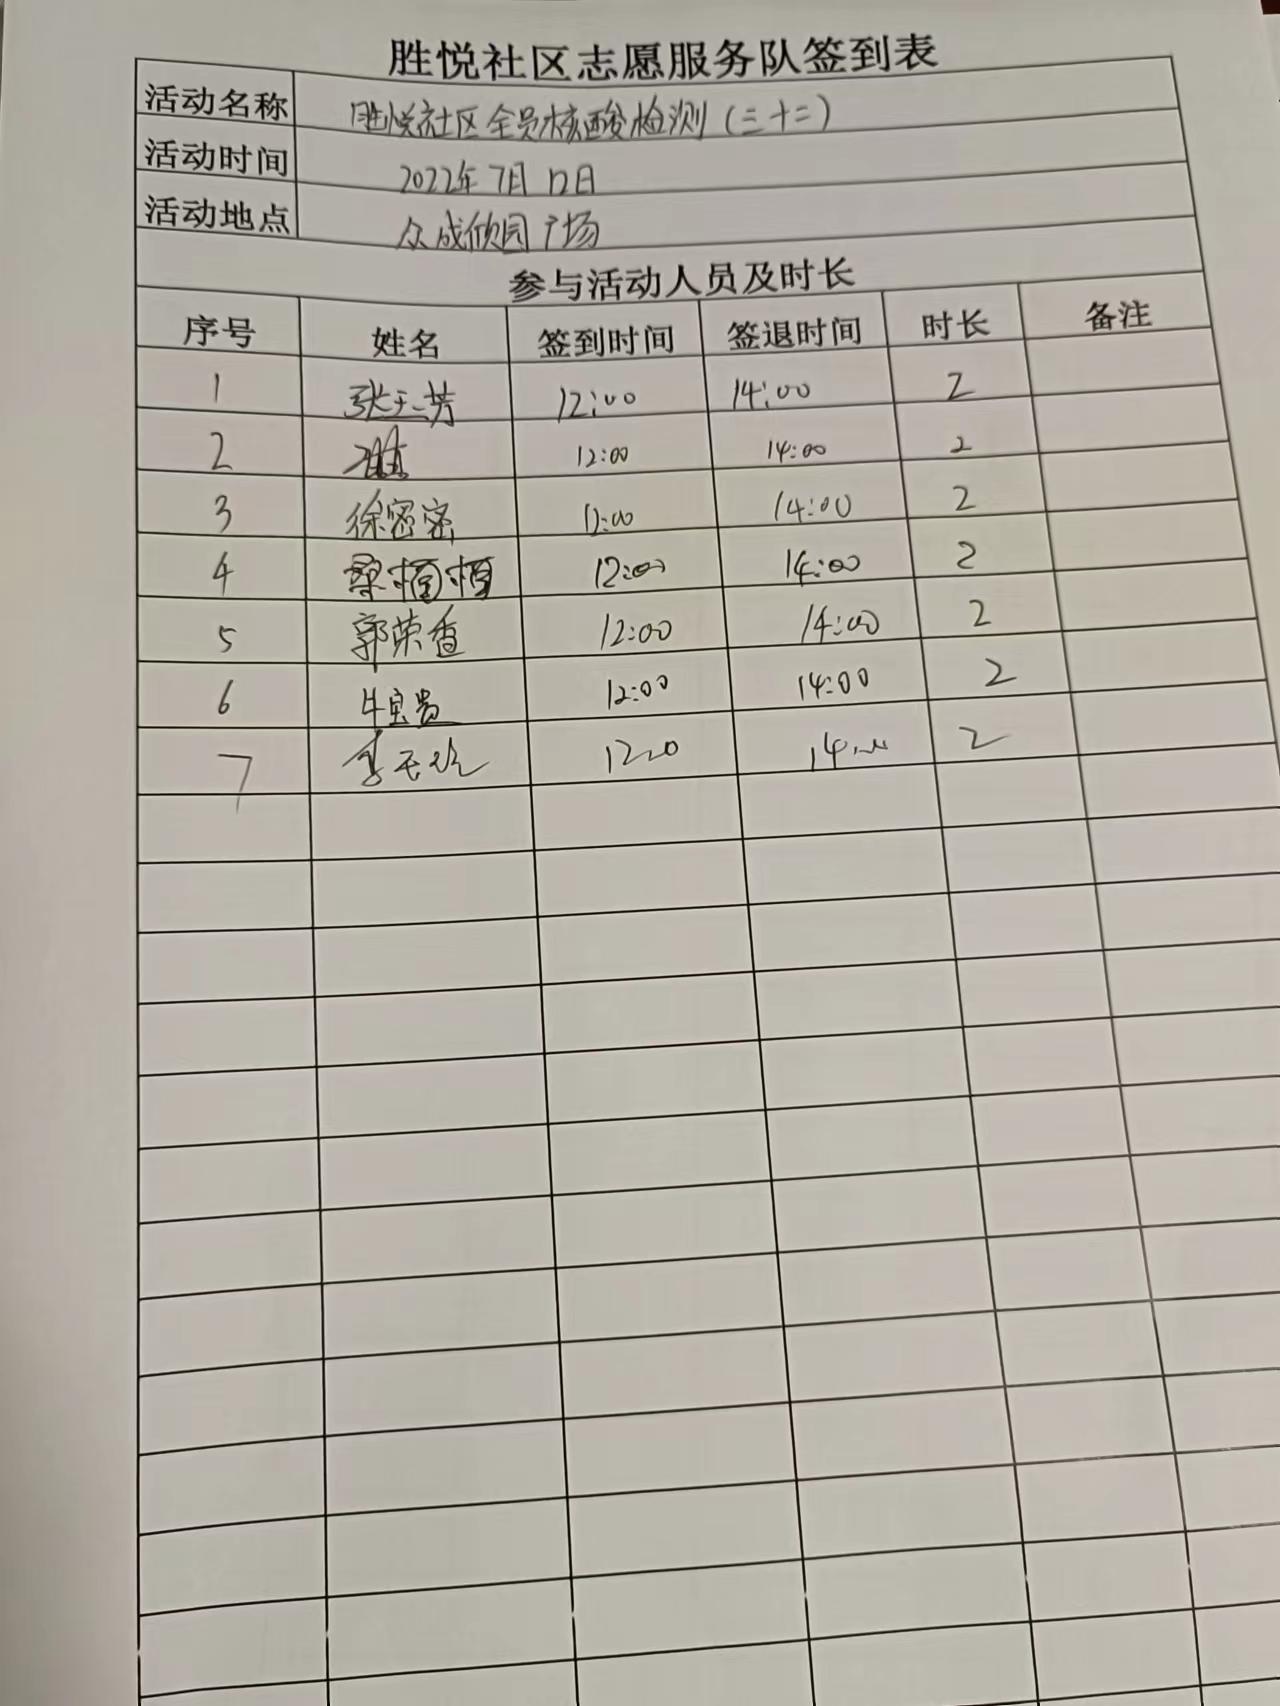 胜悦社区志愿服务队签到表
活动名称 胜悦社区全员核酸检测(三十二)
活动时间 2022年7月12日
活动地点 众成侦园广场
参与活动人员及时长
序号 姓名 签到时间 签退时间 时长 备注
1 张玉芳 12:00 14:00 2
2 12:00 14:00 2
3 徐密密 12:00 14:00 2
4 梁楠楠 12:00 14:00 2
5 郭荣香 12:00 14:00 2
6 牛宝贵 12:00 14:00 2
7 2